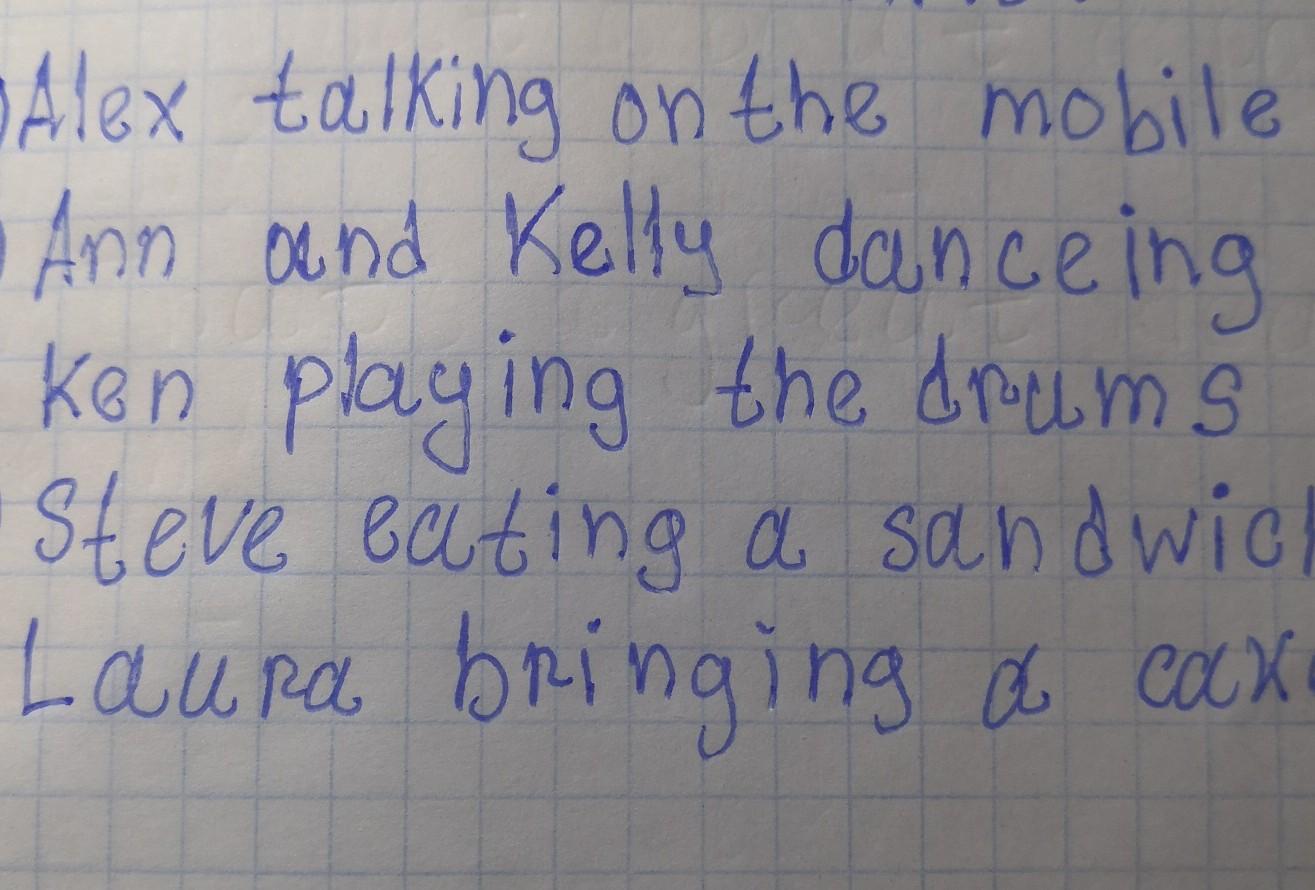 Alex talking on the mobile
Ann and Kelly danceing
Ken playing the drums
Steve eating a sandwich
Laura bringing a